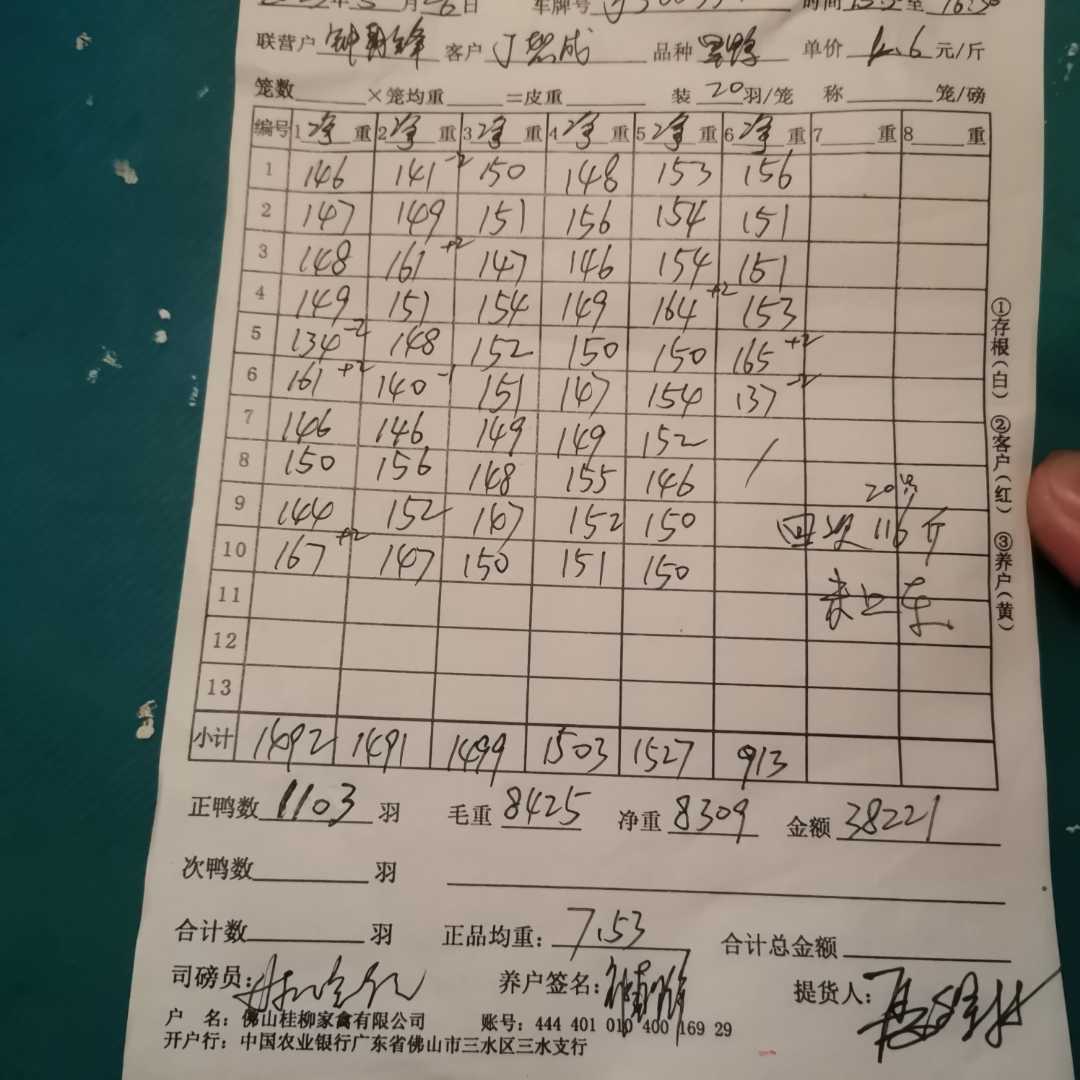 年5月26日 车牌号 时间 至16:30
联营户 客户 丁 成 品种 单价 4.6 元/斤
笼数 ×笼均重 =皮重 装 20 羽/笼 称 笼/磅
编号 1净重 2净重 3净重 4净重 5净重 6净重 7 重 8 重
1 146 141-2 150 148 153 156
2 147 149 151 156 154 151
3 148 161+2 147 146 154 151
4 149 151 154 149 164+2 153
5 134-2 148 152 150 150 165+2
6 161+2 140-1 151 147 154 137-2
7 146 146 149 149 152 /
8 150 156 148 155 146
9 144 152 147 152 150
10 167+2 147 150 151 150
11
12
13
回收116斤
小计 1492 1491 1499 1503 1527 913
正鸭数 1103 羽 毛重 8425 净重 8309 金额 38221
次鸭数 羽
合计数 羽 正品均重: 7.53 合计总金额
司磅员: 养户签名: 提货人:
户 名: 佛山桂柳家禽有限公司 账号: 444 401 010 400 169 29
开户行: 中国农业银行广东省佛山市三水区三水支行
①存根(白) ②客户(红) ③养户(黄)